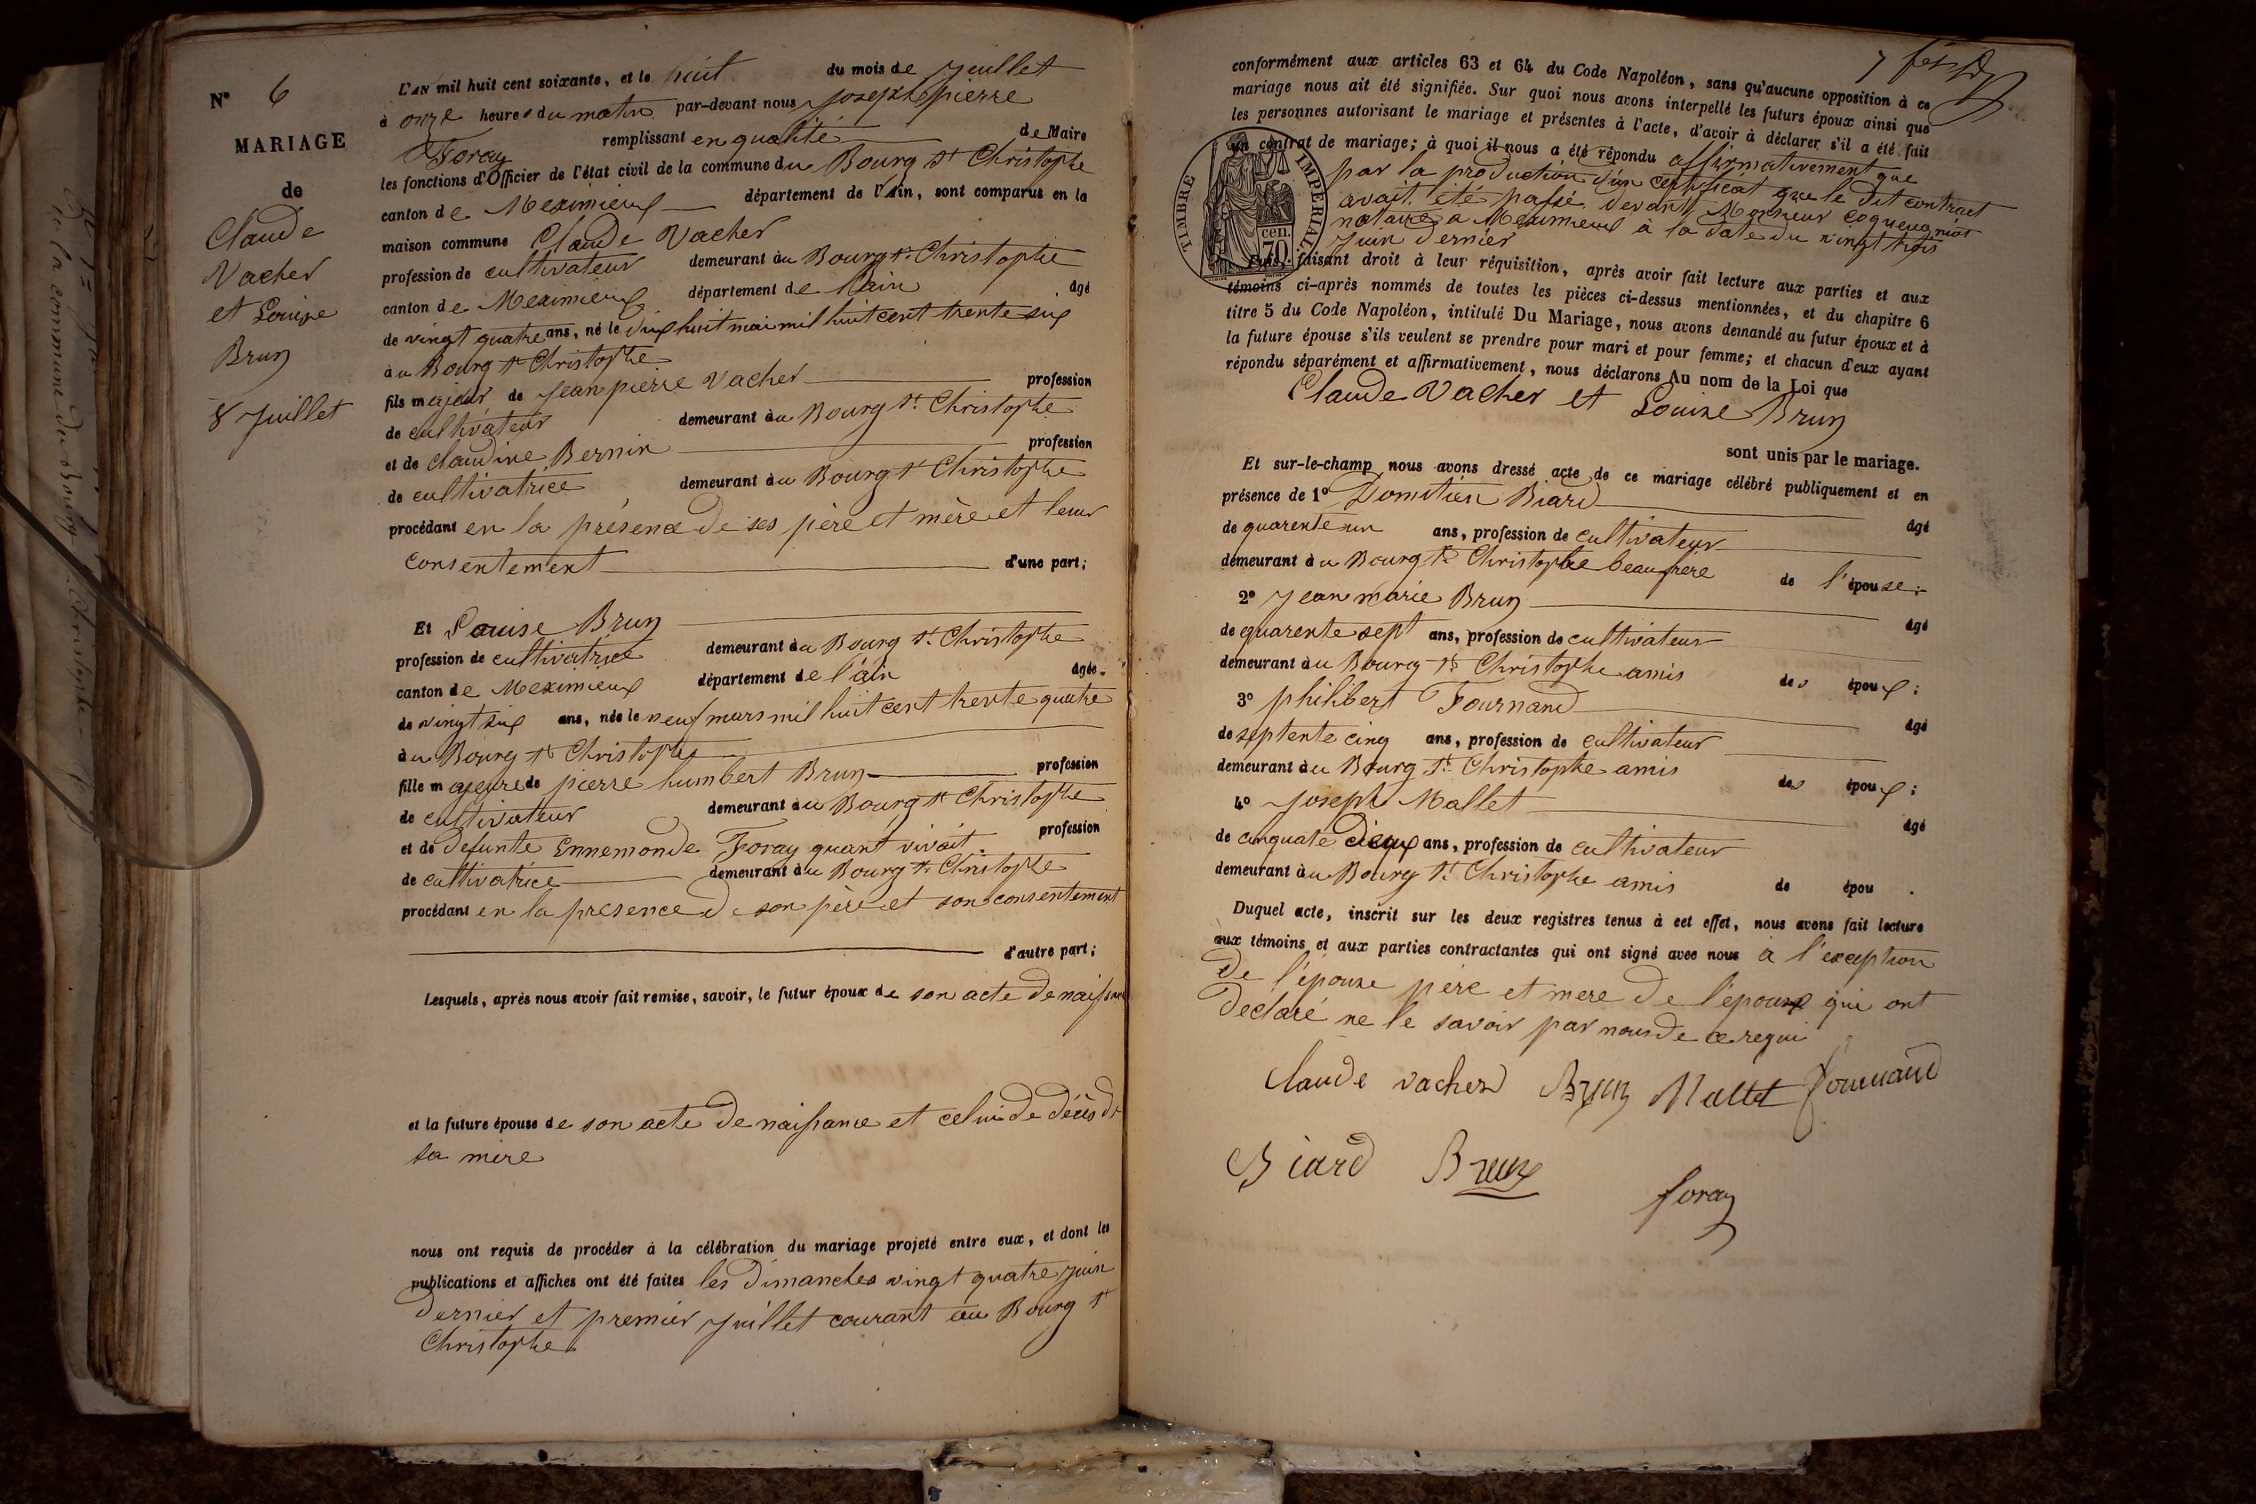 N° 6
MARIAGE
de
Claude
Vacher
et Louise
Brun
8 Juillet
L'AN mil huit cent soixante, et le huit du mois de Juillet
à onze heures du matin par-devant nous Joseph pierre
Foray remplissant en qualité de Maire
les fonctions d'Officier de l'état civil de la commune du Bourg St Christophe
canton de Meximieux département de l'Ain, sont comparus en la
maison commune Claude Vacher
profession de cultivateur demeurant au Bourg St Christophe
canton de Meximieux département de l'ain âgé
de vingt quatre ans, né le dix huit mai mil huit cent trente six
au Bourg St Christophe
fils majeur de Jean pierre Vacher profession
de cultivateur demeurant au Bourg St Christophe
et de Claudine Bernin profession
de cultivatrice demeurant au Bourg St Christophe
procédant en la présence de ses père et mère et leur
consentement d'une part;
Et Louise Brun
profession de cultivatrice demeurant au Bourg St Christophe
canton de Meximieux département de l'ain âgée
de vingt six ans, née le neuf mars mil huit cent trente quatre
au Bourg St Christophe
fille majeure de pierre humbert Brun profession
de cultivateur demeurant au Bourg St Christophe
et de defunte Ennemonde Foray quant vivait profession
de cultivatrice demeurant au Bourg St Christophe
procédant en la presence de son père et son consentement
d'autre part;
Lesquels, après nous avoir fait remise, savoir, le futur époux de son acte de naissance
et la future épouse de son acte de naissance et celui de décès de
sa mère
nous ont requis de procéder à la célébration du mariage projeté entre eux, et dont les
publications et affiches ont été faites les dimanches vingt quatre juin
dernier et premier juillet courant au Bourg St
Christophe
conformément aux articles 63 et 64 du Code Napoléon, sans qu'aucune opposition à ce
mariage nous ait été signifiée. Sur quoi nous avons interpellé les futurs époux ainsi que
les personnes autorisant le mariage et présentes à l'acte, d'avoir à déclarer s'il a été fait
un contrat de mariage; à quoi il nous a été répondu affirmativement que
par la production d'un certificat que le dit contract
avait été passé devant Monsieur Coqueugniot
notaire a Meximieux à la date du vingt trois
Juin dernier
TIMBRE IMPERIAL
70 cen.
Puis, faisant droit à leur réquisition, après avoir fait lecture aux parties et aux
témoins ci-après nommés de toutes les pièces ci-dessus mentionnées, et du chapitre 6
titre 5 du Code Napoléon, intitulé Du Mariage, nous avons demandé au futur époux et à
la future épouse s'ils veulent se prendre pour mari et pour femme; et chacun d'eux ayant
répondu séparément et affirmativement, nous déclarons Au nom de la Loi que
Claude Vacher et Louise Brun
sont unis par le mariage.
Et sur-le-champ nous avons dressé acte de ce mariage célébré publiquement et en
présence de 1° Domitien Biard âgé
de quarente un ans, profession de cultivateur
demeurant au Bourg St Christophe beaufrère de l'épouse;
2° Jean marie Brun âgé
de quarente sept ans, profession de cultivateur
demeurant au Bourg St Christophe amis des époux;
3° philibert Fournand âgé
de septente cinq ans, profession de cultivateur
demeurant au Bourg St Christophe amis des époux;
4° Joseph Mallet âgé
de cinquate deux ans, profession de cultivateur
demeurant au Bourg St Christophe amis de épou .
Duquel acte, inscrit sur les deux registres tenus à cet effet, nous avons fait lecture
aux témoins et aux parties contractantes qui ont signé avec nous à l'exception
de l'épouse père et mere de l'epoux qui ont
déclaré ne le savoir par nous de ce requi
Claude vacher Brun Mallet fournand
Biard Brun
foray